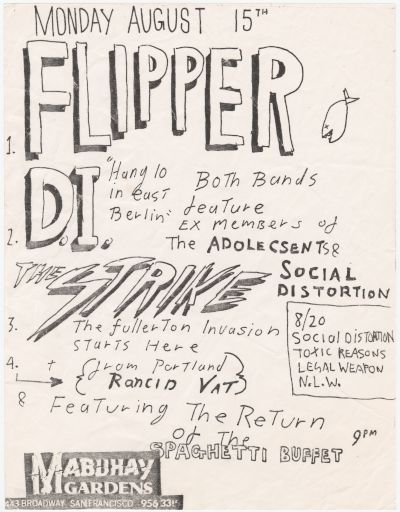 MONDAY AUGUST 15TH
1. FLIPPER
2. D.I. "Hang 10 in east Berlin"
Both Bands
feature
Ex members of
The ADOLECSENTS &
SOCIAL
DISTORTION
3. THE STRIKE
The fullerTon Invasion
STarTs Here
4. + (from Portland)
(RANCID VAT)
8/20
Social DISTORTION
TOXIC REASONS
LEGAL WEAPON
N.L.W.
& FeaTuring The ReTurn
of The
SPAGHETTI BUFFET
9PM
MABUHAY
GARDENS
443 BROADWAY SAN FRANCISCO 956 331